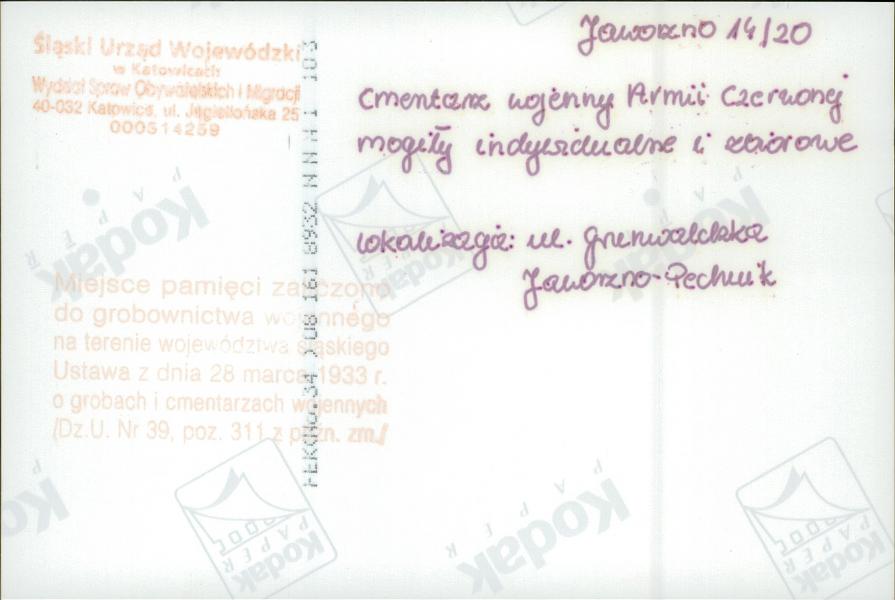 Jaworzno 14/20
Śląski Urząd Wojewódzki
w Katowicach
Wydział Spraw Obywatelskich i Migracji
40-032 Katowice, ul. Jagiellońska 25
000514259
cmentarz wojenny Armii Czerwonej
mogiły indywidualne i zbiorowe
lokalizacja: ul. Grunwaldzka
Jaworzno-Pechnik
Miejsce pamięci zaliczono
do grobownictwa wojennego
na terenie województwa śląskiego
Ustawa z dnia 28 marca 1933 r.
o grobach i cmentarzach wojennych
/Dz.U. Nr 39, poz. 311 z późn. zm./
Kodak
PAPER
Kodak
PAPER
Kodak
Kodak
PAPER
Kodak
PAPER
Kodak
PAPER
Kodak